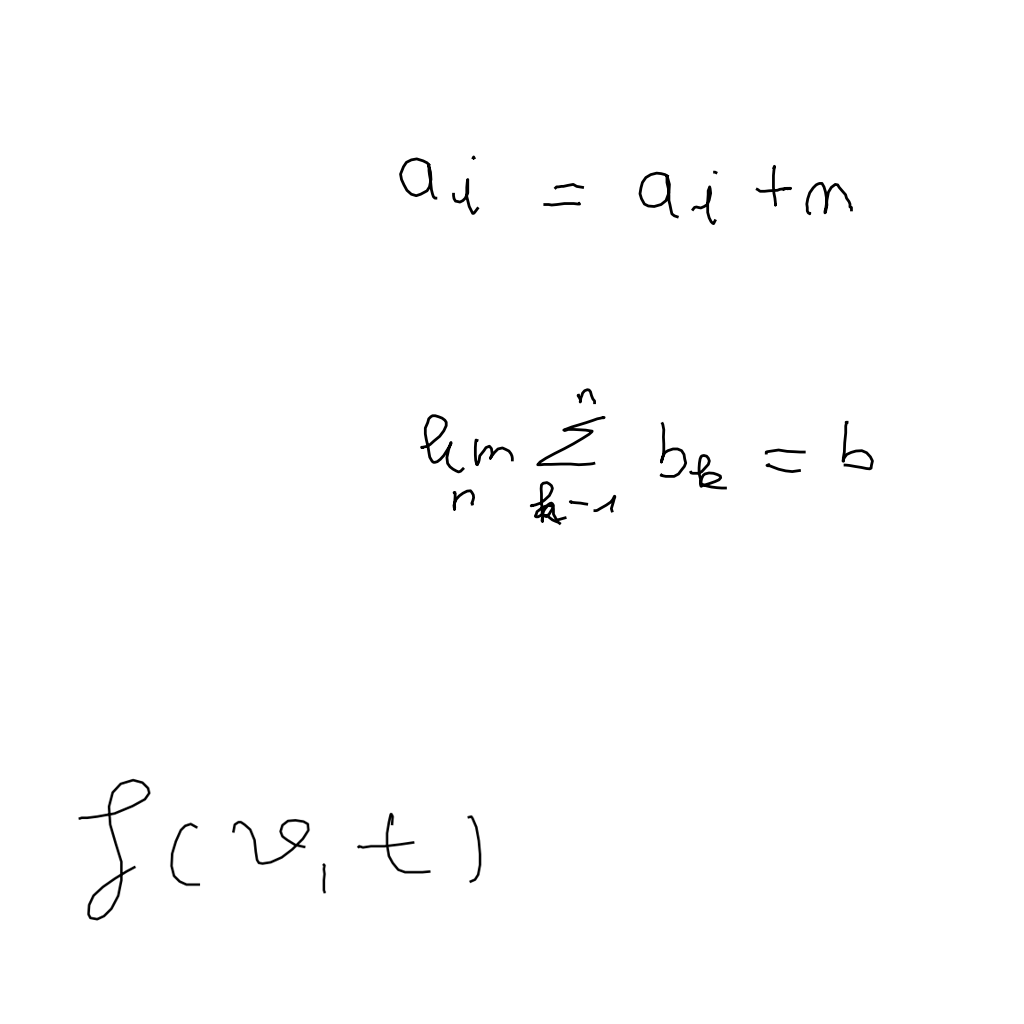 a_i = a_i + n
lim_n \sum_{k-1}^{n} b_k = b
f(v, t)